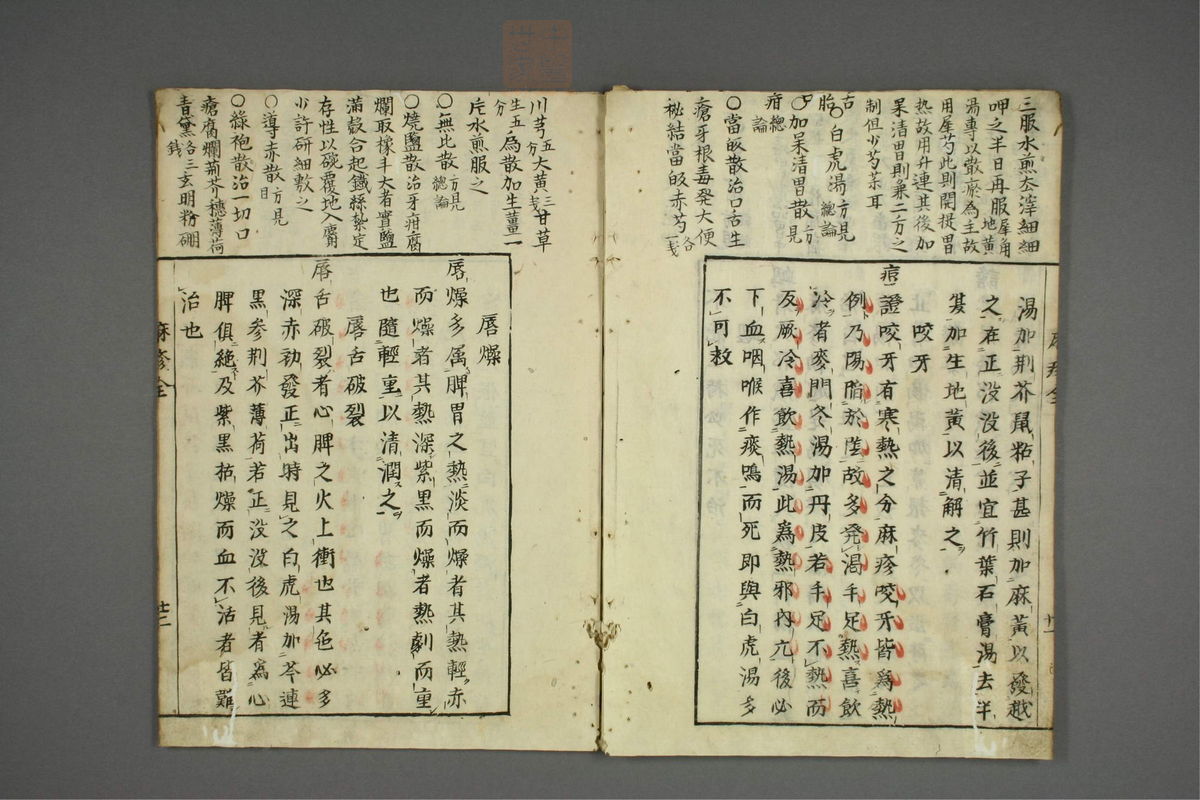 三服水煎去滓細細
呷之半日再服犀角地黄
湯專以散瘀為主故
用犀芍此則開提胃
热故用升連其後加
呆清胃則兼二方之
制但少芍苓耳
○白虎湯方見總論
○加呆清胃散方見
疳總論
○當皈散治口舌生
瘡牙根毒発大便
秘結當皈赤芍各一戔
湯加荆芥鼠粘子甚則加麻黄以發越
之在正没没後並宜竹葉石膏湯去半
夏加生地黄以清解之
咬牙
痘證咬牙有寒熱之分麻疹咬牙皆爲熱
例乃陽脂於陰故多発渇手足熱喜飲
冷者麥門冬湯加丹皮若手足不熱而
反厥冷喜飲熱湯此爲熱邪内亢後必
下血咽喉作痰鳴而死即與白虎湯多
不可救
川芎五分大黄三戔甘草
生五分為散加生薑一
片水煎服之
○無比散方見總論
○燒鹽散治牙疳腐
爛取橡斗大者實鹽
滿殼合起鐵絲紮定
存性以碗覆地入麝
少許研細敷之
○導赤散方見目
○綠袍散治一切口
瘡腐爛荊芥穗薄荷
青黛各三錢玄明粉硼
唇燥
唇燥多属脾胃之熱淡而燥者其熱輕赤
而燥者其熱深紫黒而燥者熱劇而重
也隨輕重以清潤之
唇舌破裂
唇舌破裂者心脾之火上衝也其色必多
深赤初發正出時見之白虎湯加芩連
黒参荆芥薄荷若正没没後見者爲心
脾俱絶及紫黒枯燥而血不活者皆難
治也